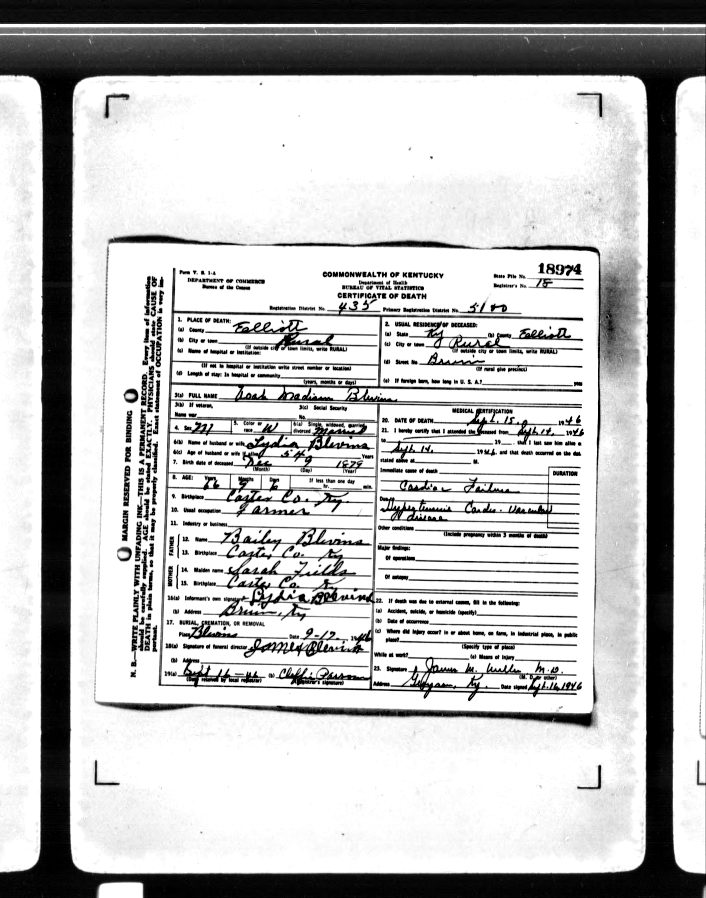 Form V. S. 1-A
DEPARTMENT OF COMMERCE
Bureau of the Census
COMMONWEALTH OF KENTUCKY
Department of Health
BUREAU OF VITAL STATISTICS
CERTIFICATE OF DEATH
State File No. 18974
Registrar's No. 18
Registration District No. 435 Primary Registration District No. 5180
MARGIN RESERVED FOR BINDING
N. B.—WRITE PLAINLY WITH UNFADING INK—THIS IS A PERMANENT RECORD. Every item of information
should be carefully supplied. AGE should be stated EXACTLY. PHYSICIANS should state CAUSE OF
DEATH in plain terms, so that it may be properly classified. Exact statement of OCCUPATION is very im-
portant.
1. PLACE OF DEATH:
(a) County Elliott
(b) City or town Rural
(If outside city or town limits, write RURAL)
(c) Name of hospital or institution:
(If not in hospital or institution write street number or location)
(d) Length of stay: In hospital or community
(years, months or days)
2. USUAL RESIDENCE OF DECEASED:
(a) State Ky (b) County Elliott
(c) City or town Rural
(If outside city or town limits, write RURAL)
(d) Street No. Bruin
(If rural give precinct)
(e) If foreign born, how long in U. S. A.? yrs
3(a) FULL NAME Noah Madison Blevins
3(b) If veteran,
Name war
3(c) Social Security
No.
4. Sex M
5. Color or
race W
6(a) Single, widowed, married,
divorced Married
6(b) Name of husband or wife Lydia Blevins
6(c) Age of husband or wife if alive 54 Years
7. Birth date of deceased Dec 9 1879
(Month) (Day) (Year)
8. AGE: Years Months Days If less than one day
66 9 6 hr. min.
9. Birthplace Carter Co. Ky
10. Usual occupation Farmer
11. Industry or business
FATHER
12. Name Bailey Blevins
13. Birthplace Carter Co. Ky
MOTHER
14. Maiden name Sarah Fields
15. Birthplace Carter Co. Ky
16(a) Informant's own signature Lydia Blevins
(b) Address Bruin, Ky
17. BURIAL, CREMATION, OR REMOVAL
Place Blevins Date 9-17 1946
18(a) Signature of funeral director James Blevins
(b) Address
19(a) Sept 16-46 (b)
(Date received by local registrar) (Registrar's signature)
MEDICAL CERTIFICATION
20. DATE OF DEATH Sept. 15, 1946
21. I hereby certify that I attended the deceased from Sept. 14, 1946
to 19 , that I last saw him alive on
Sept. 14, 1946, and that death occurred on the date
stated above at M.
Immediate cause of death
DURATION
Cardiac Failure
Due to
Hypertensive Cardio-Vascular
disease
Other conditions
(Include pregnancy within 3 months of death)
Major findings:
Of operations
Of autopsy
22. If death was due to external causes, fill in the following:
(a) Accident, suicide, or homicide (specify)
(b) Date of occurrence
(c) Where did injury occur? in or about home, on farm, in industrial place, in public
place?
(Specify type of place)
While at work? (e) Means of injury
23. Signature James M. M.D.
(M. D. or other)
Address Grayson, Ky. Date signed Sept. 16, 1946